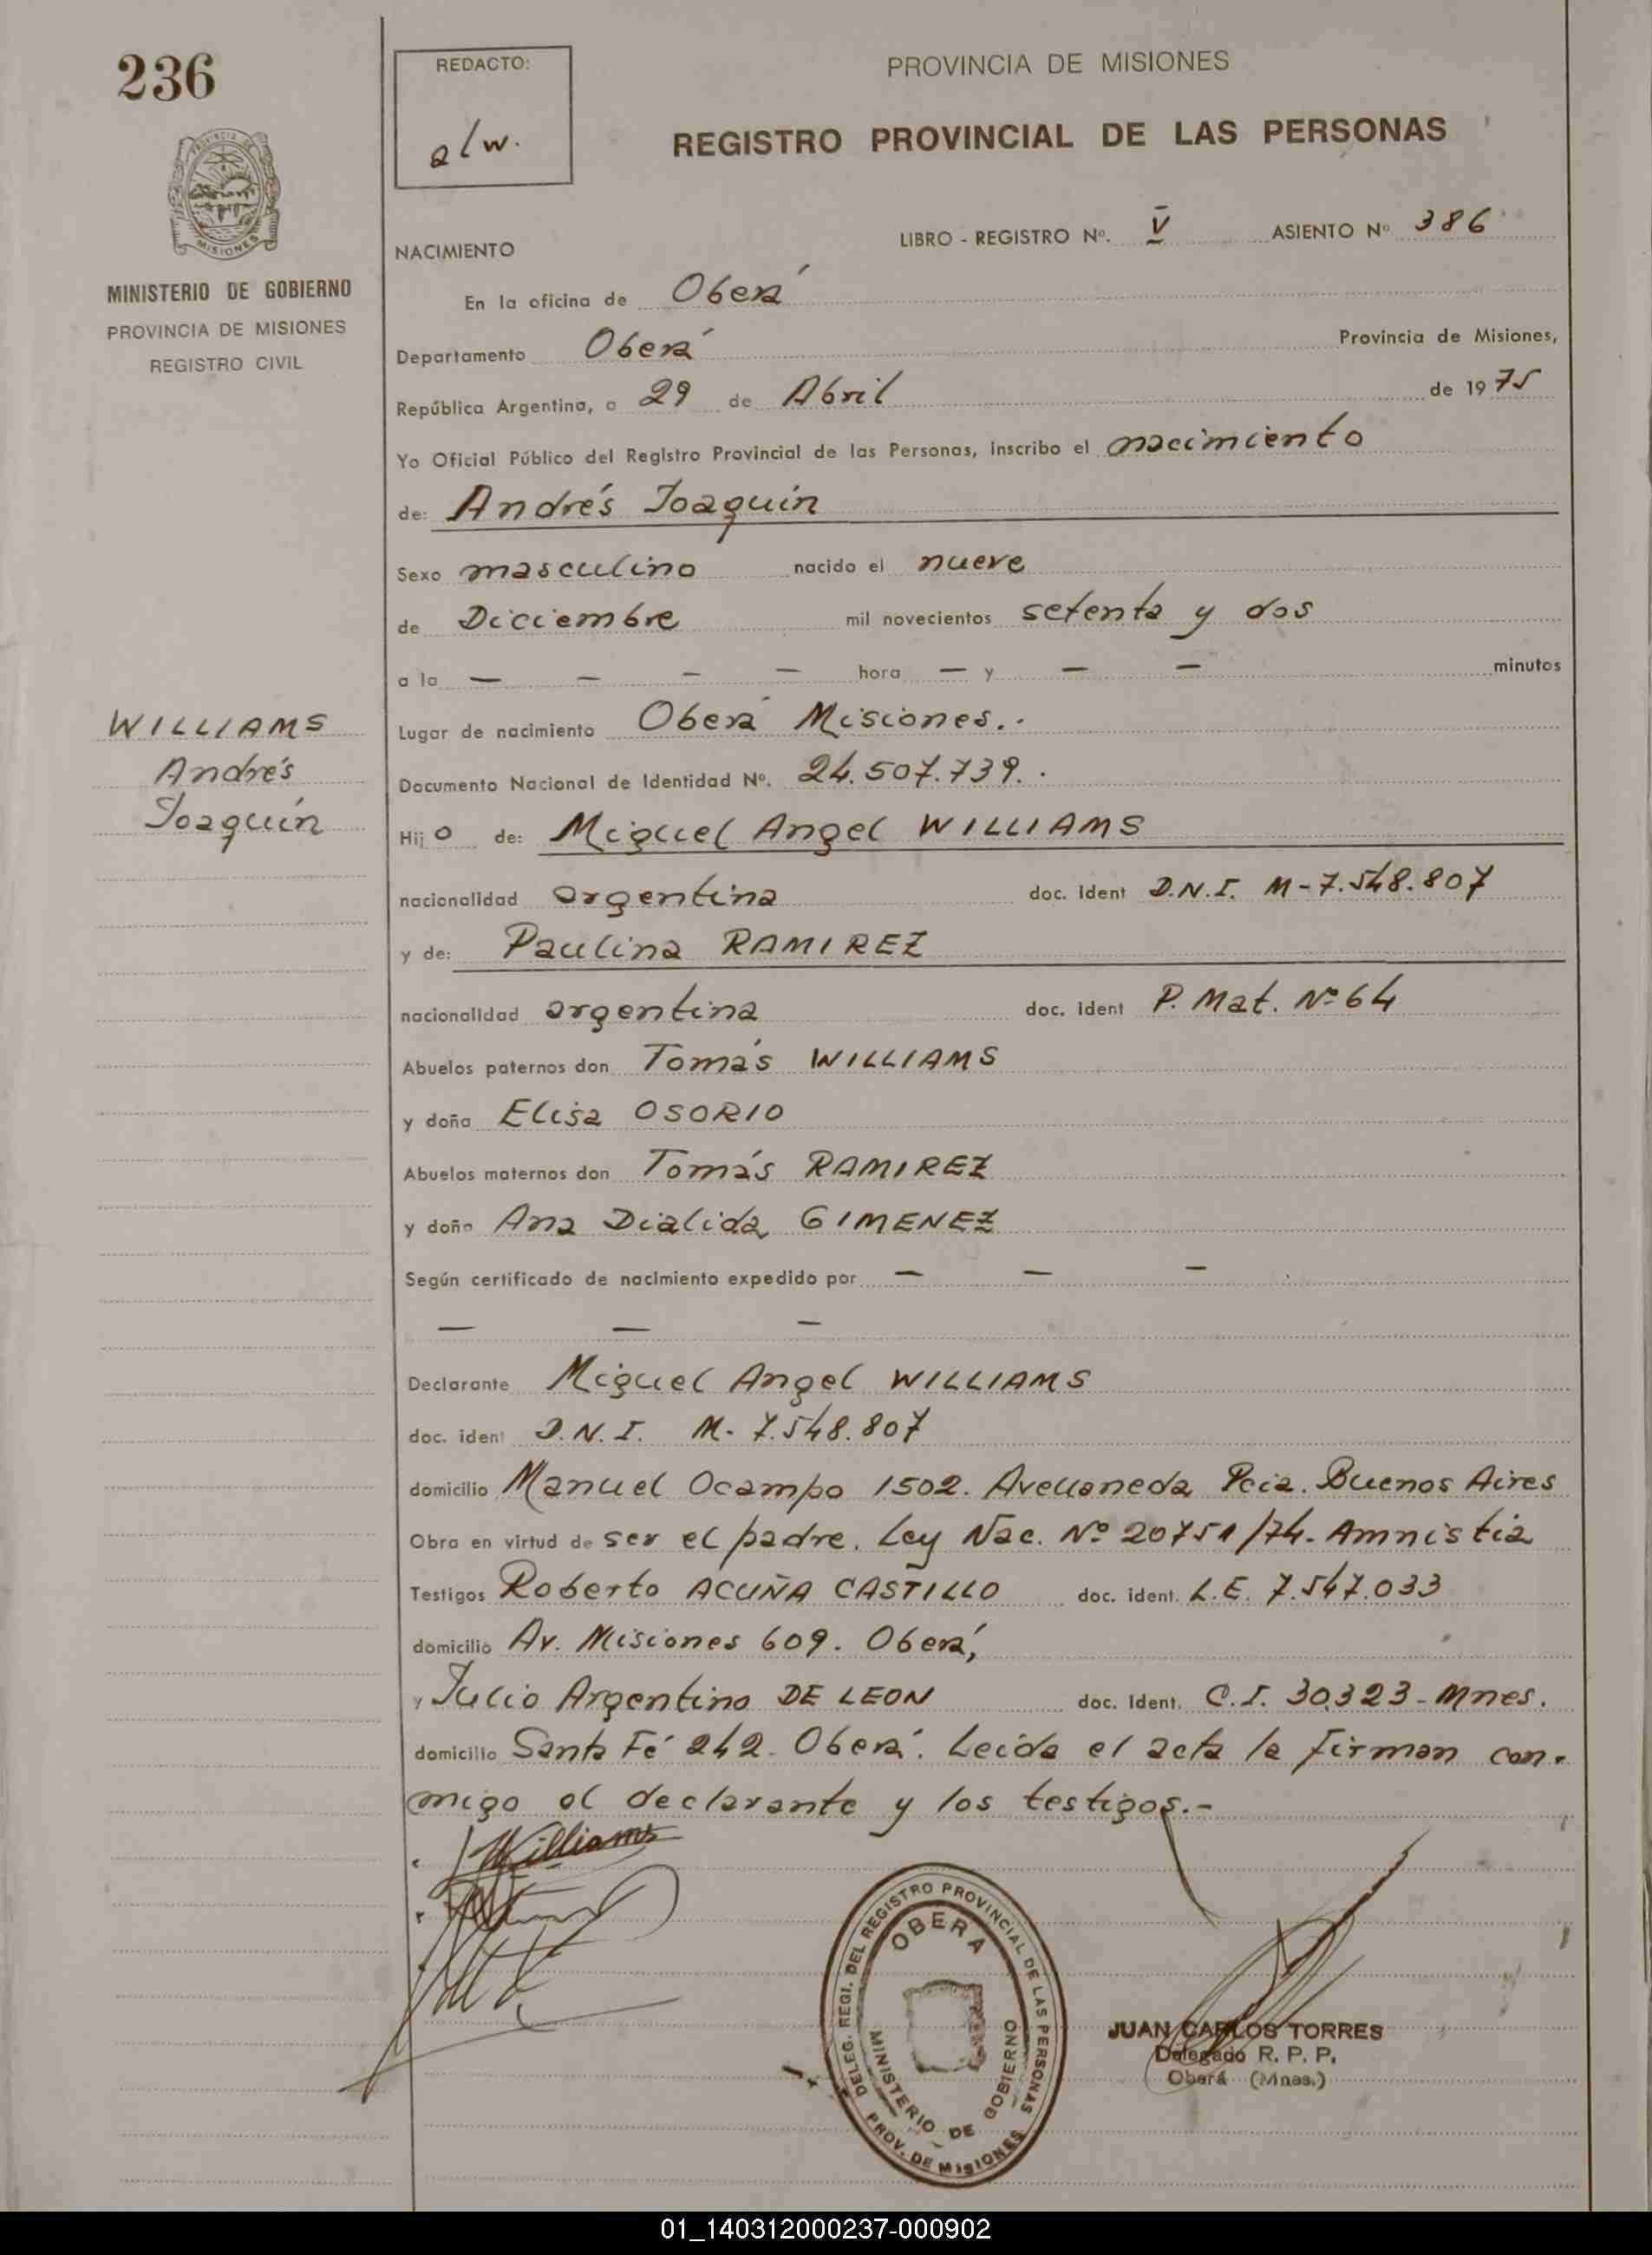 236
REDACTO:
alw.
PROVINCIA DE MISIONES
REGISTRO PROVINCIAL DE LAS PERSONAS
PROVINCIA DE
MISIONES
MINISTERIO DE GOBIERNO
PROVINCIA DE MISIONES
REGISTRO CIVIL
LIBRO - REGISTRO Nº. V ASIENTO Nº 386
NACIMIENTO
En la oficina de Oberá
Departamento Oberá Provincia de Misiones,
República Argentina, a 29 de Abril de 1975
Yo Oficial Público del Registro Provincial de las Personas, inscribo el nacimiento
de: Andrés Joaquín
Sexo masculino nacido el nueve
de Diciembre mil novecientos setenta y dos
a la — — — — hora — y — — minutos
WILLIAMS
Andrés
Joaquín
Lugar de nacimiento Oberá Misiones.-
Documento Nacional de Identidad Nº. 24.507.739.-
Hijo de: Miguel Angel WILLIAMS
nacionalidad argentina doc. ident D.N.I. M-7.548.807
y de: Paulina RAMIREZ
nacionalidad argentina doc. ident P. Mat. Nº 64
Abuelos paternos don Tomás WILLIAMS
y doña Elisa OSORIO
Abuelos maternos don Tomás RAMIREZ
y doña Ana Dialida GIMENEZ
Según certificado de nacimiento expedido por — — —
— — —
Declarante Miguel Angel WILLIAMS
doc. ident D.N.I. M- 7.548.807
domicilio Manuel Ocampo 1502. Avellaneda Pcia. Buenos Aires
Obra en virtud de ser el padre. Ley Nac. Nº 20751/74- Amnistia
Testigos Roberto ACUÑA CASTILLO doc. ident. L.E. 7.547.033
domicilio Av. Misiones 609. Oberá,
y Julio Argentino DE LEON doc. Ident. C.I. 30323-Mnes.
domicilio Santa Fé 242- Oberá. Leida el acta la firman con-
migo el declarante y los testigos.-
Williams
DELEG. REGI. DEL REGISTRO PROVINCIAL DE LAS PERSONAS
OBERA
MINISTERIO DE GOBIERNO
PROV. DE MISIONES
JUAN CARLOS TORRES
Delegado R. P. P.
Oberá (Mnes.)
01_140312000237-000902